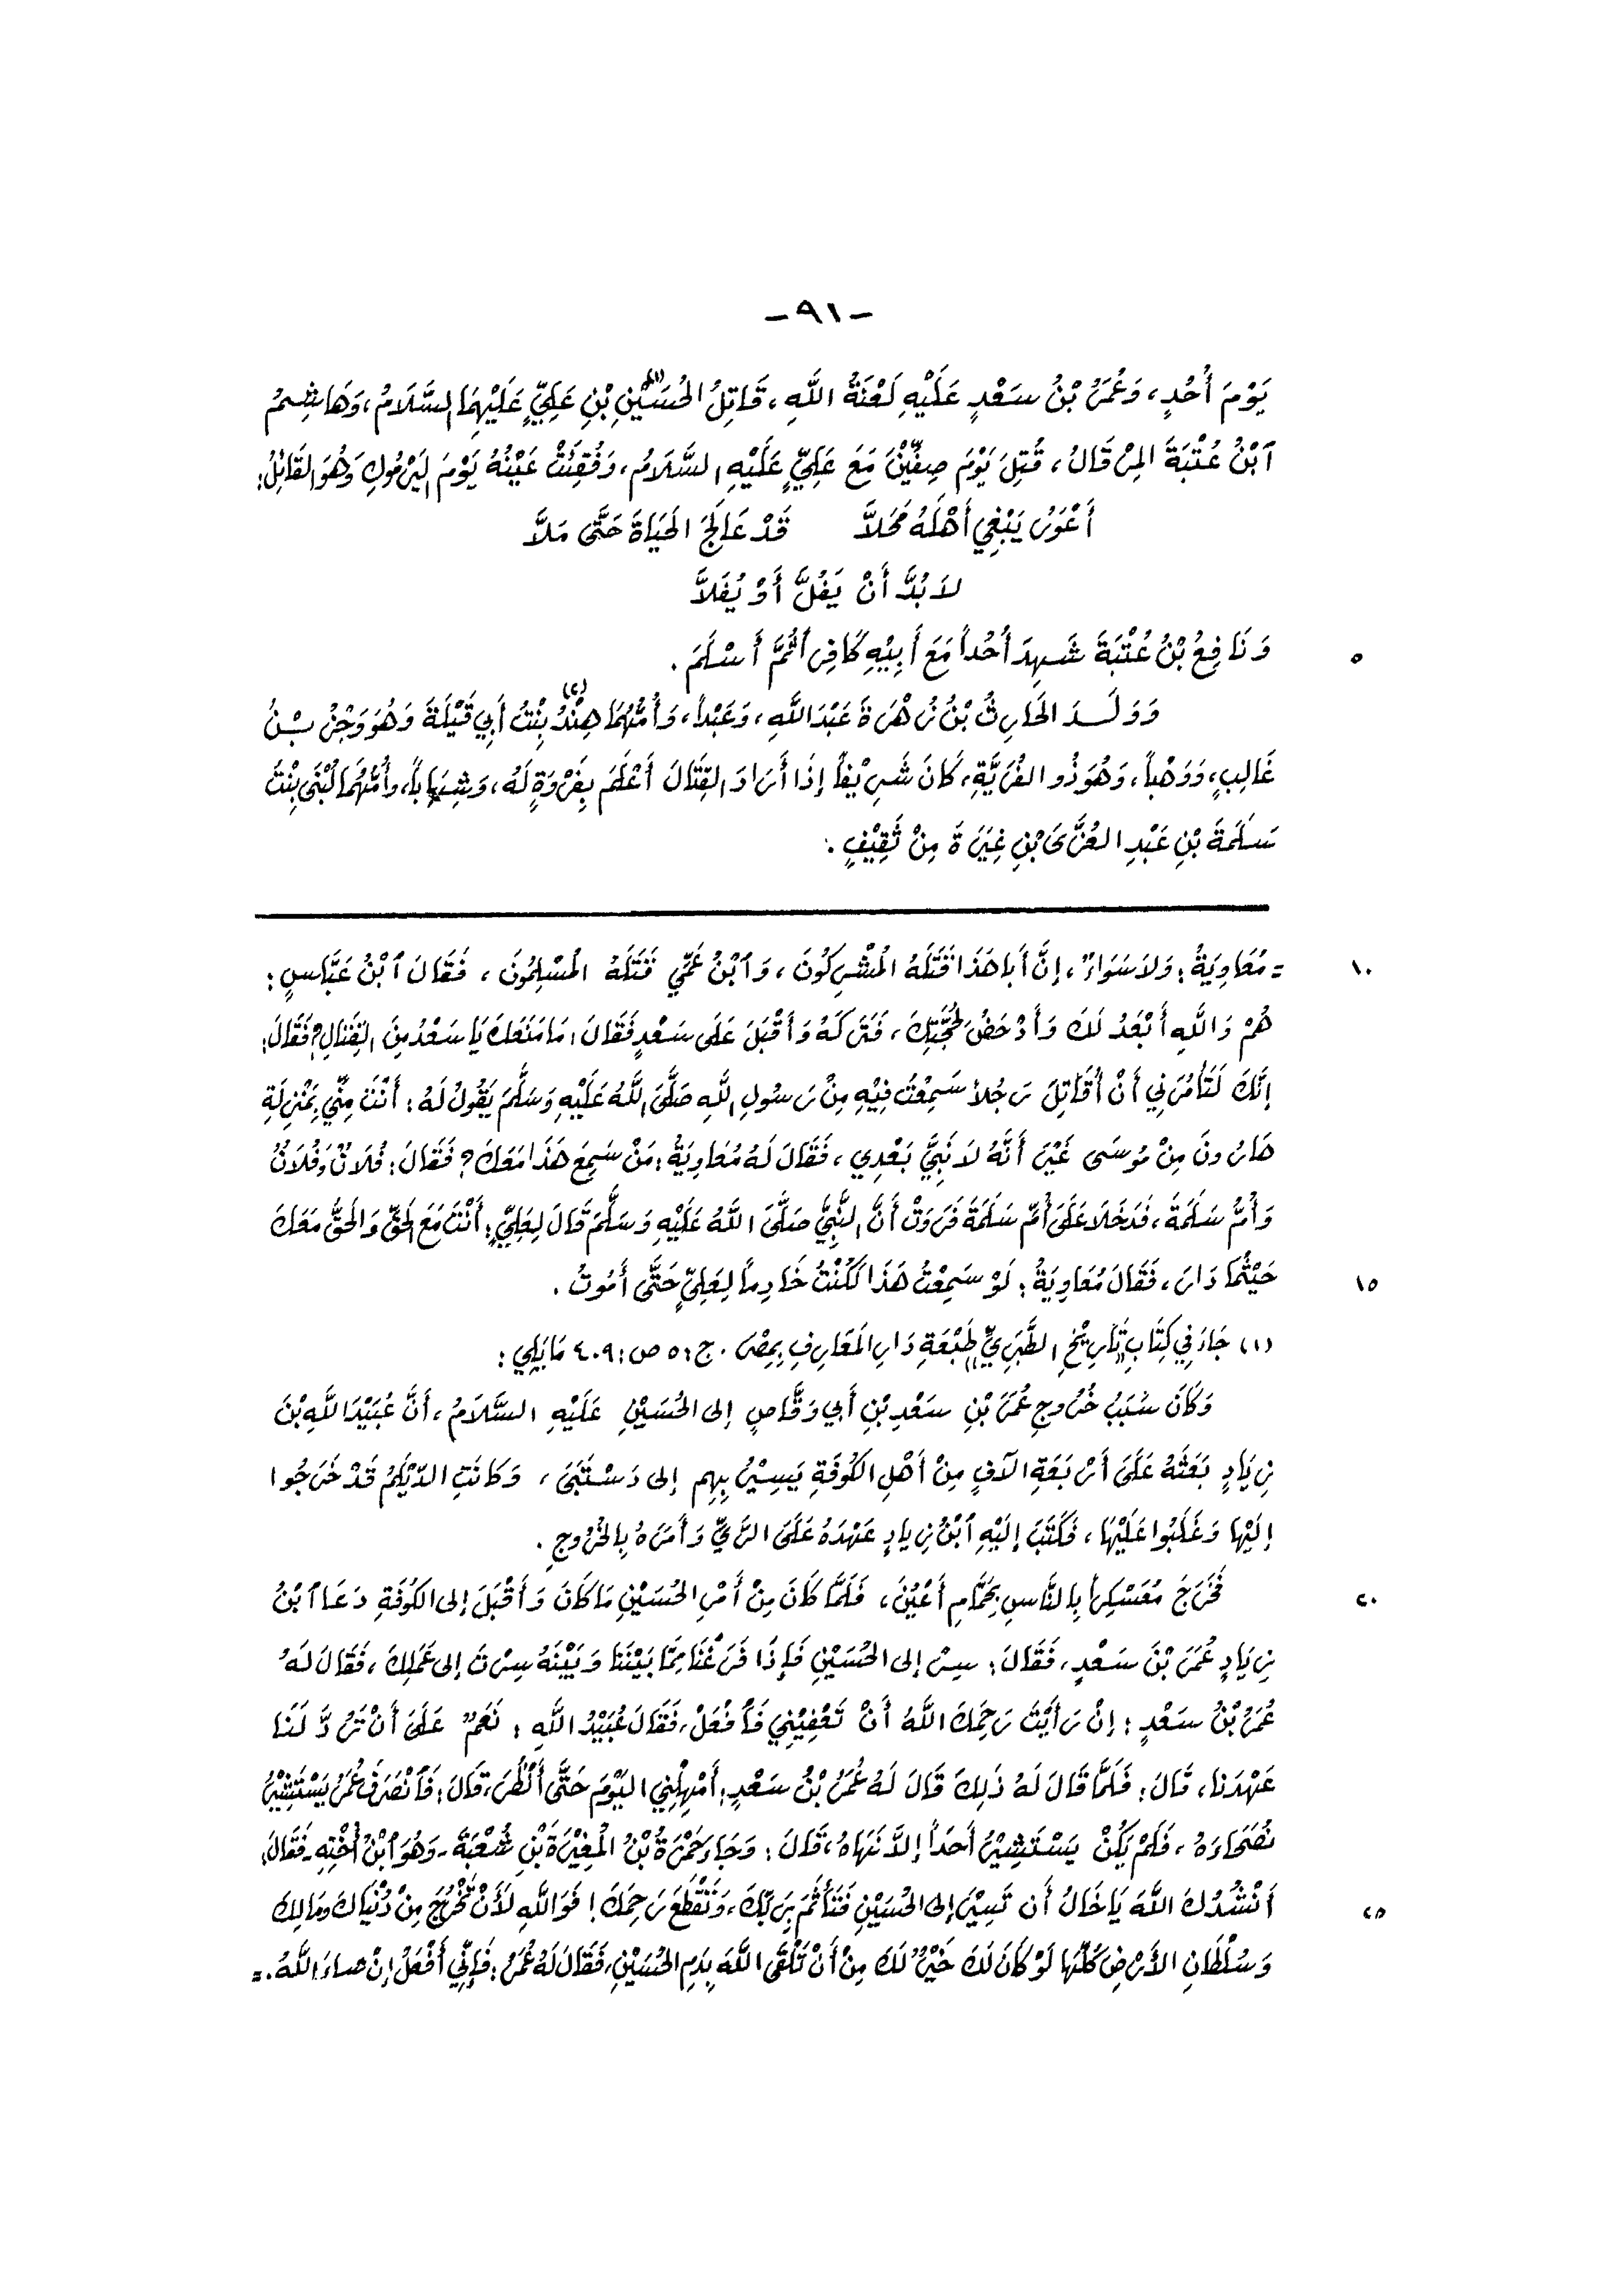 -٩١-
يَوْمَ أُحُدٍ، وَعُمَرُ بْنُ سَعْدٍ عَلَيْهِ لَعْنَةُ اللَّهِ، قَاتِلُ الحُسَيْنِ(١) بْنِ عَلِيٍّ عَلَيْهِمَا السَّلَامُ، وَهَاشِمُ
ٱبْنُ عُتْبَةَ المِرْقَالُ، قُتِلَ يَوْمَ صِفِّيْنَ مَعَ عَلِيٍّ عَلَيْهِ السَّلَامُ، وَفُقِئَتْ عَيْنُهُ يَوْمَ اليَرْمُوكِ وَهُوَ القَائِلُ:
أَعْوَرُ يَبْغِي أَهْلَهُ مَحَلاَّ قَدْ عَالَجَ الحَيَاةَ حَتَّى مَلاَّ
لاَ بُدَّ أَنْ يَفُلَّ أَوْ يُفَلاَّ
وَنَافِعُ بْنُ عُتْبَةَ شَهِدَ أُحُداً مَعَ أَبِيْهِ كَافِراً ثُمَّ أَسْلَمَ. ٥
وَوَلَدَ الحَارِثُ بْنُ زُهْرَةَ عَبْدَ اللَّهِ، وَعَبْداً، وَأُمُّهُمَا هِنْدُ(٢) بِنْتُ أَبِي قَيْلَةَ وَهُوَ وَجْزُ بْنُ
غَالِبٍ، وَوَهْباً، وَهُوَ ذُو الفُرَيَّةِ، كَانَ شَرِيْفاً إِذَا أَرَادَ القِتَالَ أَعْلَمَ بِفَرْوَةٍ لَهُ، وَشِهَاباً، وأُمُّهُمَا لُبْنَى بِنْتُ
سَلَمَةَ بْنِ عَبْدِ العُزَّى بْنِ غِيَرَةَ مِنْ ثَقِيْفٍ.
= مُعَاوِيَةُ: وَلاَ سَوَاءٌ، إِنَّ أَبَا هَذَا قَتَلَهُ المُشْرِكُونَ، وَٱبْنُ عَمِّي قَتَلَهُ المُسْلِمُونَ، فَقَالَ ٱبْنُ عَبَّاسٍ: ١٠
هُمْ وَاللَّهِ أَبْعَدُ لَكَ وَأَدْحَضُ لِحُجَّتِكَ، فَتَرَكَهُ وَأَقْبَلَ عَلَى سَعْدٍ فَقَالَ: مَا مَنَعَكَ يَا سَعْدُ مِنَ القِتَالِ؟ فَقَالَ:
إِنَّكَ لَتَأْمُرُنِي أَنْ أُقَاتِلَ رَجُلاً سَمِعْتُ فِيْهِ مِنْ رَسُولِ اللَّهِ صَلَّى اللَّهُ عَلَيْهِ وَسَلَّمَ يَقُولُ لَهُ: أَنْتَ مِنِّي بِمَنْزِلَةِ
هَارُونَ مِنْ مُوسَى غَيْرَ أَنَّهُ لاَ نَبِيَّ بَعْدِي، فَقَالَ لَهُ مُعَاوِيَةُ: مَنْ سَمِعَ هَذَا مَعَكَ؟ فَقَالَ: فُلَانٌ وَفُلَانٌ
وَأُمُّ سَلَمَةَ، فَدَخَلَا عَلَى أُمِّ سَلَمَةَ فَرَوَتْ أَنَّ النَّبِيَّ صَلَّى اللَّهُ عَلَيْهِ وَسَلَّمَ قَالَ لِعَلِيٍّ: أَنْتَ مَعَ الحَقِّ وَالحَقُّ مَعَكَ
حَيْثُمَا دَارَ، فَقَالَ مُعَاوِيَةُ: لَوْ سَمِعْتُ هَذَا لَكُنْتُ خَادِماً لِعَلِيٍّ حَتَّى أَمُوتُ. ١٥
(١) جَاءَ فِي كِتَابِ «تَارِيْخِ الطَّبَرِيِّ» طَبْعَةِ دَارِ المَعَارِفِ بِمِصْرَ. ج: ٥ ص: ٤٠٩ مَا يَلِي:
وَكَانَ سَبَبُ خُرُوجِ عُمَرَ بْنِ سَعْدِ بْنِ أَبِي وَقَّاصٍ إلى الحُسَيْنِ عَلَيْهِ السَّلَامُ، أَنَّ عُبَيْدَ اللَّهِ بْنَ
زِيَادٍ بَعَثَهُ عَلَى أَرْبَعَةِ آلَافٍ مِنْ أَهْلِ الكُوفَةِ يَسِيْرُ بِهِم إلى دَسْتَبَى، وَكَانَتِ الدَّيْلَمُ قَدْ خَرَجُوا
إِلَيْهَا وَغَلَبُوا عَلَيْهَا، فَكَتَبَ إِلَيْهِ ٱبْنُ زِيَادٍ عَهْدَهُ عَلَى الرَّيِّ وَأَمَرَهُ بِالخُرُوجِ.
فَخَرَجَ مُعَسْكِراً بِالنَّاسِ بِحَمَّامِ أَعْيُنَ، فَلَمَّا كَانَ مِنْ أَمْرِ الحُسَيْنِ مَا كَانَ وَأَقْبَلَ إلى الكُوفَةِ دَعَا ٱبْنُ ٢٠
زِيَادٍ عُمَرَ بْنَ سَعْدٍ، فَقَالَ: سِرْ إلى الحُسَيْنِ فَإِذَا فَرَغْنَا مِمَّا بَيْنَنَا وَبَيْنَهُ سِرْتَ إلى عَمَلِكَ، فَقَالَ لَهُ
عُمَرُ بْنُ سَعْدٍ: إِنْ رَأَيْتَ رَحِمَكَ اللَّهُ أَنْ تَعْفِيْنِي فَٱفْعَلْ، فَقَالَ عُبَيْدُ اللَّهِ: نَعَمْ عَلَى أَنْ تَرُدَّ لَنَا
عَهْدَنَا، قَالَ: فَلَمَّا قَالَ لَهُ ذَلِكَ قَالَ لَهُ عُمَرُ بْنُ سَعْدٍ: أَمْهِلْنِي اليَوْمَ حَتَّى أَنْظُرَ، قَالَ: فَٱنْصَرَفَ عُمَرُ يَسْتَشِيْرُ
نُصَحَاءَهُ، فَلَمْ يَكُنْ يَسْتَشِيْرُ أَحَداً إِلاَّ نَهَاهُ، قَالَ: وَجَاءَ حَمْزَةُ بْنُ المُغِيْرَةِ بْنِ شُعْبَةَ - وَهُوَ ٱبْنُ أُخْتِهِ - فَقَالَ:
أَنْشُدُكَ اللَّهَ يَا خَالُ أَن تَسِيْرَ إلى الحُسَيْنِ فَتَأْثَمَ بِرَبِّكَ، وَتَقْطَعَ رَحِمَكَ! فَوَاللَّهِ لَأَنْ تَخْرُجَ مِنْ دُنْيَاكَ وَمَالِكَ ٢٥
وَسُلْطَانِ الأَرْضِ كُلِّهَا لَوْ كَانَ لَكَ خَيْرٌ لَكَ مِنْ أَنْ تَلْقَى اللَّهَ بِدَمِ الحُسَيْنِ، فَقَالَ لَهُ عُمَرُ: فَإِنِّي أَفْعَلُ إِنْ شَاءَ اللَّهُ. =